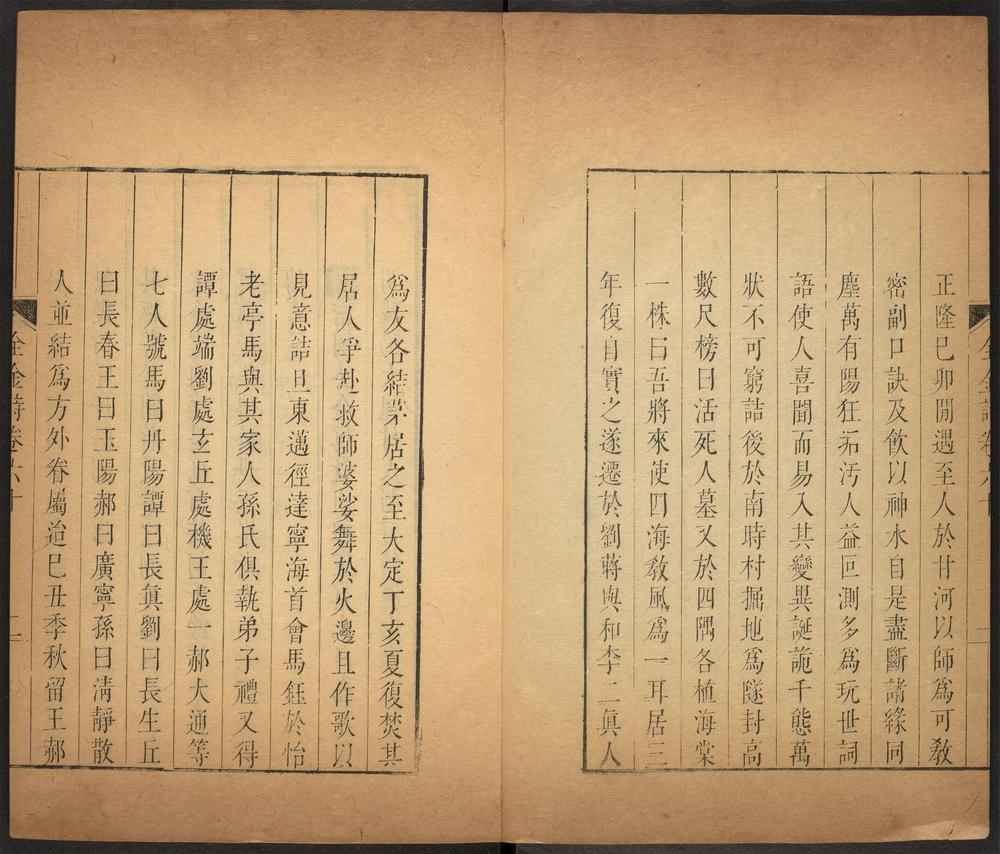 正隆巳卯閒遇至人於甘河以師爲可教
密副口訣及飮以神水自是盡斷諸緣同
塵萬有陽狂垢汚人益叵測多爲玩世詞
語使人喜聞而易入其變異誕詭千態萬
狀不可窮詰後於南時村掘地爲隧封高
數尺榜曰活死人墓又於四隅各植海棠
一株曰吾將來使四海敎風爲一耳居三
年復自實之遂遷於劉蔣與和李二眞人
爲友各結茅居之至大定丁亥夏復焚其
居人爭赴救師婆娑舞於火邊且作歌以
見意詰旦東邁徑達寧海首會馬鈺於怡
老亭馬與其家人孫氏俱執弟子禮又得
譚處端劉處玄丘處機王處一郝大通等
七人號馬曰丹陽譚曰長眞劉曰長生丘
曰長春王曰玉陽郝曰廣寧孫曰淸靜散
人並結爲方外眷屬迨巳丑季秋留王郝
全金詩卷六十
二